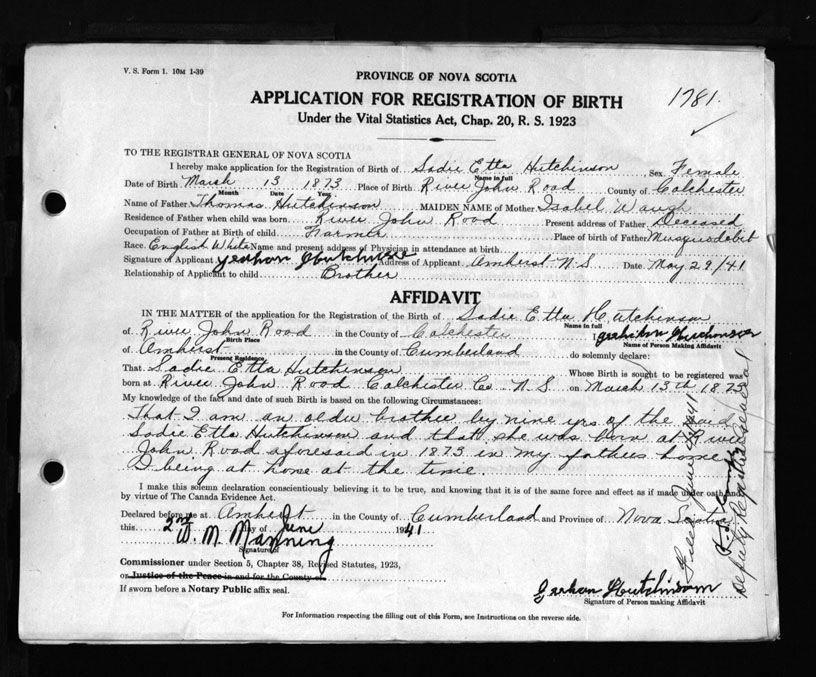 V. S. Form 1. 10M 1-39
PROVINCE OF NOVA SCOTIA
1781.
APPLICATION FOR REGISTRATION OF BIRTH
Under the Vital Statistics Act, Chap. 20, R. S. 1923
TO THE REGISTRAR GENERAL OF NOVA SCOTIA
I hereby make application for the Registration of Birth of Sadie Etta Hutchinson, Sex Female
Name in full
Date of Birth March 13 1873 Place of Birth River John Road County of Colchester
Month Date Year
Name of Father Thomas Hutchinson MAIDEN NAME of Mother Isabel Waugh
Residence of Father when child was born. River John Road Present address of Father Deceased
Occupation of Father at Birth of child Farmer Place of birth of Father Musquodobit
Race. English White Name and present address of Physician in attendance at birth
Signature of Applicant Hutchinson Address of Applicant Amherst N.S. Date May 29/41
Relationship of Applicant to child Brother
AFFIDAVIT
IN THE MATTER of the application for the Registration of the Birth of Sadie Etta Hutchinson
Name in full
of River John Road in the County of Colchester I, Hutchinson
Birth Place Name of Person Making Affidavit
of Amherst in the County of Cumberland do solemnly declare:
Present Residence
That Sadie Etta Hutchinson Whose Birth is sought to be registered was
born at River John Road Colchester Co N S on March 13th 1873
My knowledge of the fact and date of such Birth is based on the following Circumstances:
That I am an older brother by nine yrs of the said
Sadie Etta Hutchinson and that she was born at River
John Road aforesaid in 1873 in my fathers home
I being at home at the time.
I make this solemn declaration conscientiously believing it to be true, and knowing that it is of the same force and effect as if made under oath and
by virtue of The Canada Evidence Act.
Declared before me at Amherst in the County of Cumberland and Province of Nova Scotia
this 2nd day of June 1941
W. M. Manning
Signature of
Commissioner under Section 5, Chapter 38, Revised Statutes, 1923,
or Justice of the Peace in and for the County of
If sworn before a Notary Public affix seal.
Hutchinson
Signature of Person making Affidavit
For Information respecting the filling out of this Form, see Instructions on the reverse side.
Deputy Registrar General